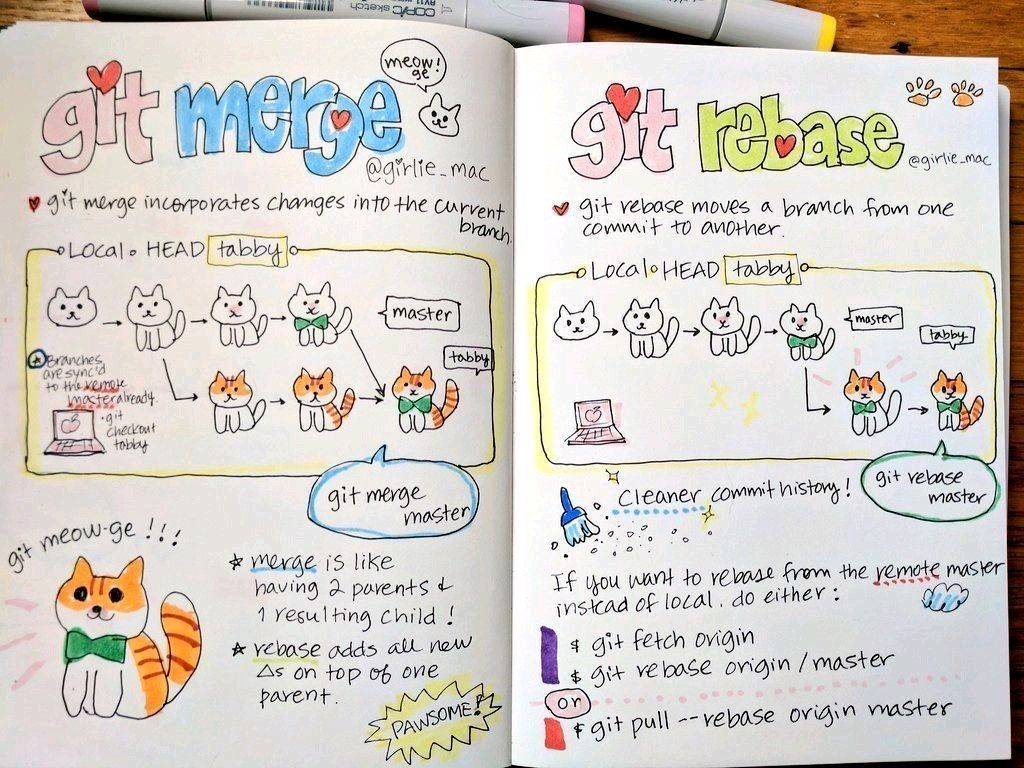 COPIC sketch
meow!
ge
git merge
@girlie_mac
git merge incorporates changes into the current
branch.
Local HEAD tabby
master
tabby
Branches
are sync'd
to the remote
master already.
git
checkout
tabby
git merge
master
git meow-ge !!!
merge is like
having 2 parents &
1 resulting child!
rebase adds all new
Δs on top of one
parent.
PAWSOME!
git rebase
@girlie_mac
git rebase moves a branch from one
commit to another.
Local HEAD tabby
master
tabby
git rebase
master
cleaner commit history!
If you want to rebase from the remote master
instead of local, do either:
$ git fetch origin
$ git rebase origin/master
or
$ git pull --rebase origin master